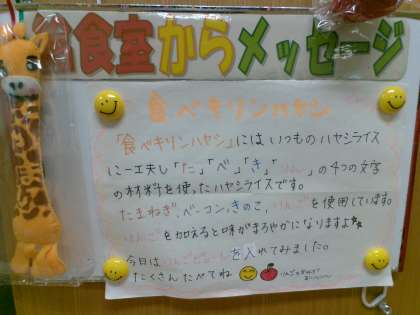 食室からメッセージ
食べキリンハヤシ
「食べキリンハヤシ」にはいつものハヤシライス
に一工夫し「た」「べ」「き」「りん」の4つの文字
の材料を使ったハヤシライスです。
たまねぎ、ベーコン、きのこ、りんごを使用しています。
りんごを加えると味がまろやかになりますよ
今日は を入れてみました。
たくさんたべてね